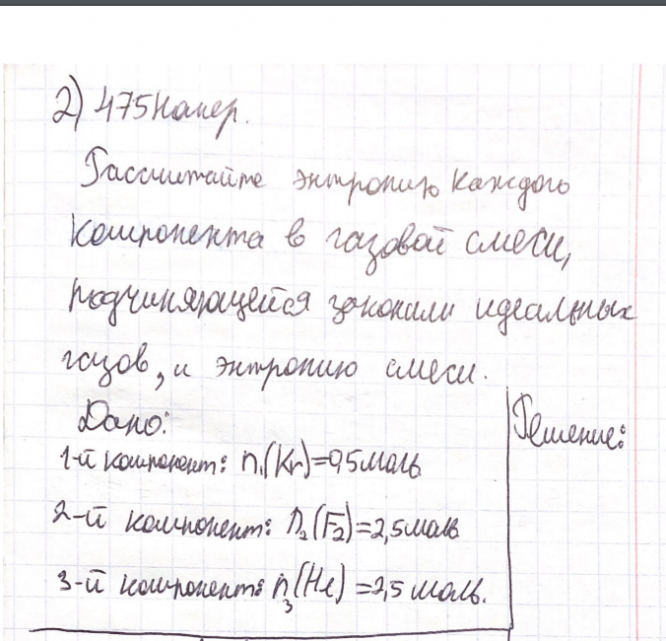 2) 475 номер.
Рассчитайте энтропию каждого
компонента в газовой смеси,
подчиняющейся законами идеальных
газов, и энтропию смеси.
Дано:
Решение:
1-й компонент: n₁(Kr)=0,5моль
2-й компонент: n₂(F₂)=2,5моль
3-й компонент: n₃(He)=2,5 моль.